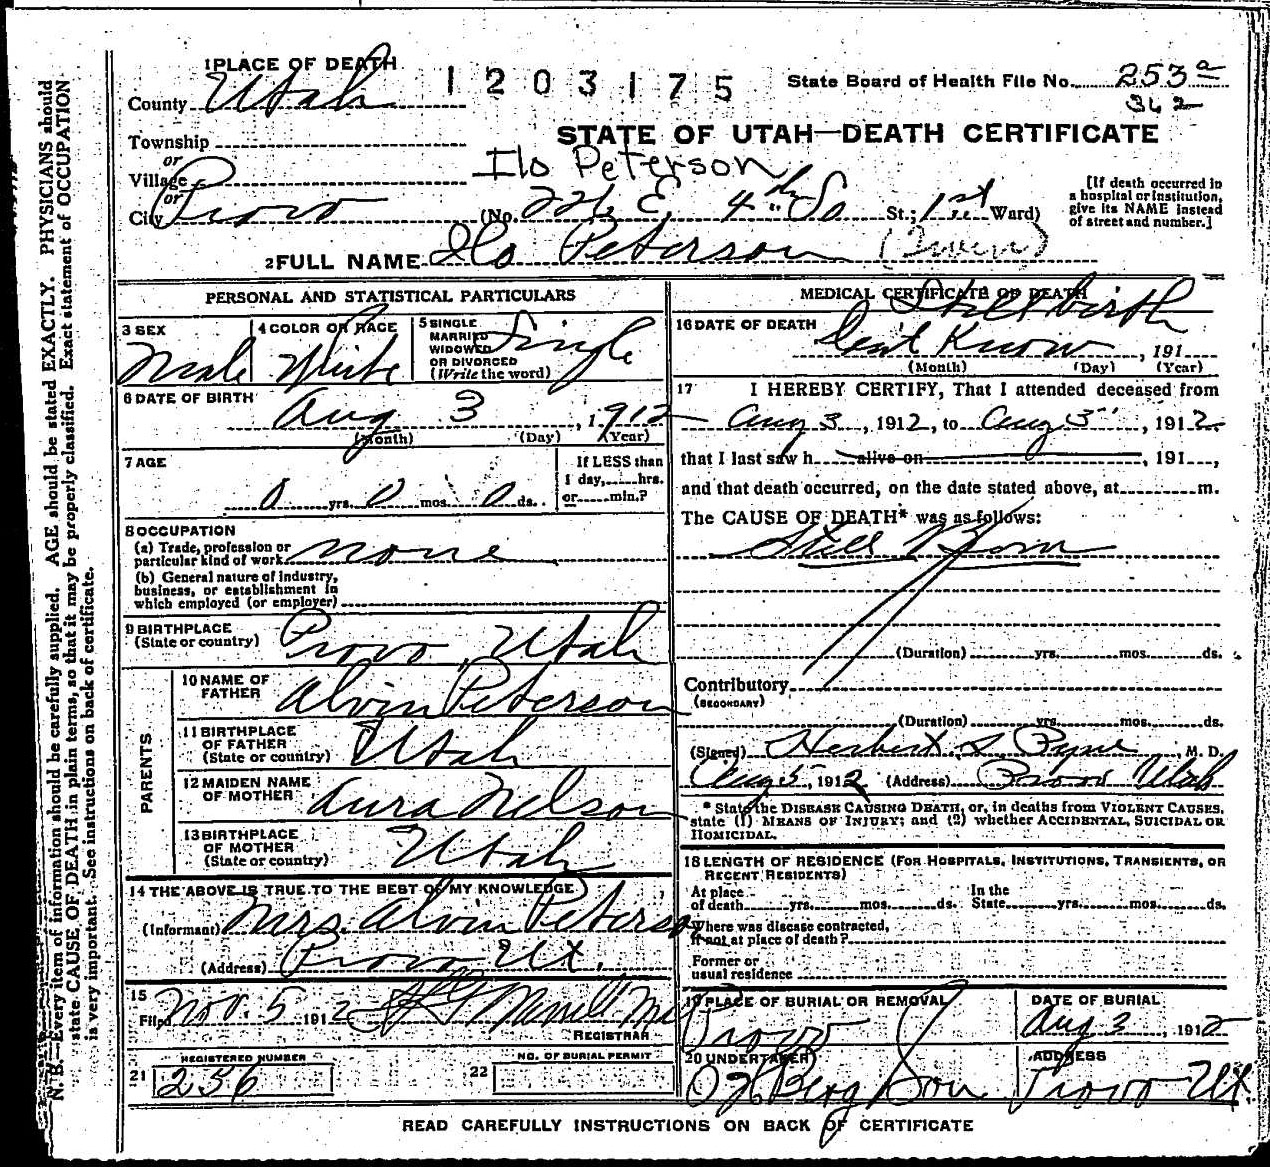 1 PLACE OF DEATH
1203175
State Board of Health File No. 253 a
362
County Utah
STATE OF UTAH—DEATH CERTIFICATE
Township
or
Ilo Peterson
Village
or
City Provo (No. E. 4th So St.; 1st Ward)
[If death occurred in a hospital or institution, give its NAME instead of street and number.]
2 FULL NAME Ilo Peterson (Twin)
PERSONAL AND STATISTICAL PARTICULARS
3 SEX Male
4 COLOR OR RACE White
5 SINGLE MARRIED WIDOWED OR DIVORCED (Write the word) Single
6 DATE OF BIRTH
Aug 3, 1912
(Month) (Day) (Year)
7 AGE
0 yrs. 0 mos. 0 ds.
If LESS than 1 day, hrs. or min.?
8 OCCUPATION
(a) Trade, profession or particular kind of work none
(b) General nature of industry, business, or establishment in which employed (or employer)
9 BIRTHPLACE (State or country) Provo, Utah
PARENTS
10 NAME OF FATHER Alvin Peterson
11 BIRTHPLACE OF FATHER (State or country) Utah
12 MAIDEN NAME OF MOTHER Aura Nelson
13 BIRTHPLACE OF MOTHER (State or country) Utah
14 THE ABOVE IS TRUE TO THE BEST OF MY KNOWLEDGE
(Informant) Mrs. Alvin Peterson
(Address) Provo Ut.
15
Filed Nov. 5 1912 Merrill
REGISTRAR
REGISTERED NUMBER
21 256
NO. OF BURIAL PERMIT
22
MEDICAL CERTIFICATE OF DEATH
Stillbirth
16 DATE OF DEATH
Don't Know, 191
(Month) (Day) (Year)
17 I HEREBY CERTIFY, That I attended deceased from
Aug 3, 1912, to Aug 3, 1912
that I last saw h alive on , 191 ,
and that death occurred, on the date stated above, at m.
The CAUSE OF DEATH* was as follows:
Still Born
(Duration) yrs. mos. ds.
Contributory
(SECONDARY)
(Duration) yrs. mos. ds.
(Signed) Herbert S Pyne, M. D.
Aug 5, 1912 (Address) Provo Utah
* State the DISEASE CAUSING DEATH, or, in deaths from VIOLENT CAUSES, state (1) MEANS OF INJURY; and (2) whether ACCIDENTAL, SUICIDAL OR HOMICIDAL.
18 LENGTH OF RESIDENCE (FOR HOSPITALS, INSTITUTIONS, TRANSIENTS, OR RECENT RESIDENTS)
At place of death yrs. mos. ds. In the State yrs. mos. ds.
Where was disease contracted, if not at place of death?
Former or usual residence
19 PLACE OF BURIAL OR REMOVAL
Provo
DATE OF BURIAL
Aug 3, 1912
20 UNDERTAKER
Berg Son
ADDRESS
Provo Ut.
READ CAREFULLY INSTRUCTIONS ON BACK OF CERTIFICATE
N. B.—Every item of information should be carefully supplied. AGE should be stated EXACTLY. PHYSICIANS should
state CAUSE OF DEATH in plain terms, so that it may be properly classified. Exact statement of OCCUPATION
is very important. See instructions on back of certificate.